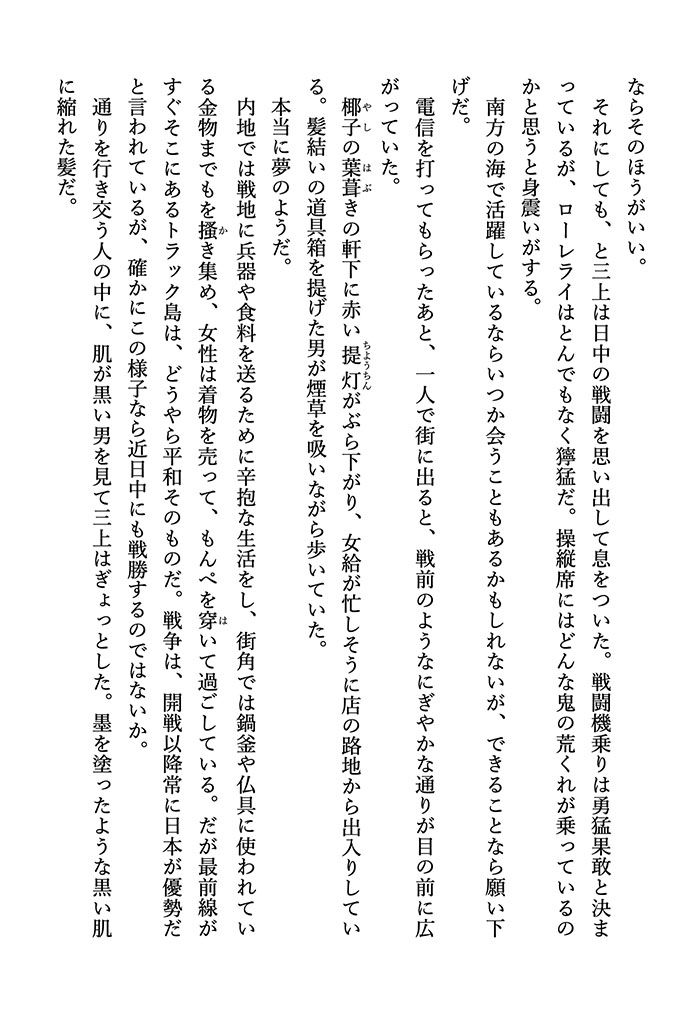 ならそのほうがいい。
　それにしても、と三上は日中の戦闘を思い出して息をついた。戦闘機乗りは勇猛果敢と決ま
っているが、ローレライはとんでもなく獰猛だ。操縦席にはどんな鬼の荒くれが乗っているの
かと思うと身震いがする。
　南方の海で活躍しているならいつか会うこともあるかもしれないが、できることなら願い下
げだ。
　電信を打ってもらったあと、一人で街に出ると、戦前のようなにぎやかな通りが目の前に広
がっていた。
　椰子の葉葺きの軒下に赤い提灯がぶら下がり、女給が忙しそうに店の路地から出入りしてい
る。髪結いの道具箱を提げた男が煙草を吸いながら歩いていた。
　本当に夢のようだ。
　内地では戦地に兵器や食料を送るために辛抱な生活をし、街角では鍋釜や仏具に使われてい
る金物までもを掻き集め、女性は着物を売って、もんぺを穿いて過ごしている。だが最前線が
すぐそこにあるトラック島は、どうやら平和そのものだ。戦争は、開戦以降常に日本が優勢だ
と言われているが、確かにこの様子なら近日中にも戦勝するのではないか。
　通りを行き交う人の中に、肌が黒い男を見て三上はぎょっとした。墨を塗ったような黒い肌
に縮れた髪だ。